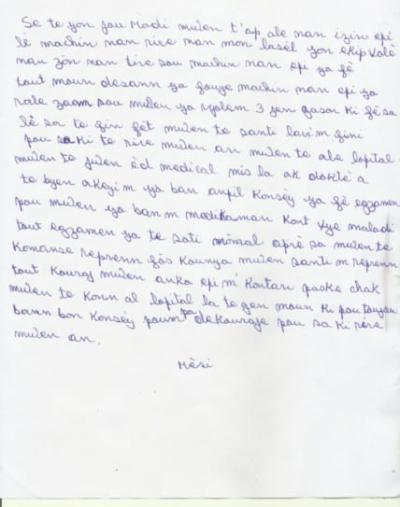 Se te yon jou Madi mwen t'ap ale nan izin epi
lè machin nan rive nan mon lasèl yon ekip vole
nan zòn nan tire sou machin nan epi yo fè
tout moun desann yo fouye machin nan epi yo
rale zam sou mwen yo vyolem 3 jan gason ki fè sa
lè sa te fin fèt mwen te santi lavi'm fini
pou sa ki te rive mwen an mwen te ale lopital
mwen te jwen èd medical mis la ak doktè a
te byen akeyi'm yo ban anpil konsèy yo fè egzamen
pou mwen yo banm medikaman kont vye maladi
tout egzamen yo te soti nòmal aprè sa mwen te
komanse reprenn fòs kounya mwen santi m reprenn
tout kouraj mwen anko epi m' kontan paske chak
mwen te konn al lopital la te gen moun ki pou toujou
banm bon konsèy poum pa dekouraje pou sa ki rive
mwen an.
Mèsi